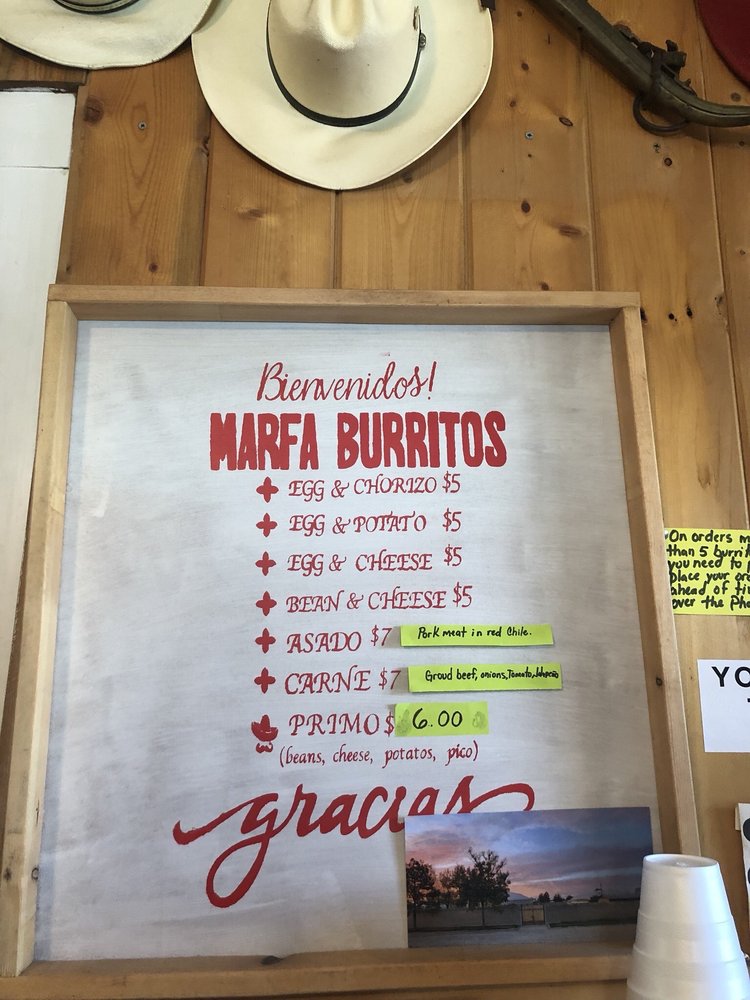 Bienvenidos!
MARFA BURRITOS
EGG & CHORIZO $5
EGG & POTATO $5
EGG & CHEESE $5
BEAN & CHEESE $5
ASADO $7 Pork meat in red Chile.
CARNE $7 Groud beef, onions, Tomato, Jalapeño
PRIMO $6.00
(beans, cheese, potatos, pico)
gracias
On orders
than 5
you need to
place your
ahead of
over the
YO